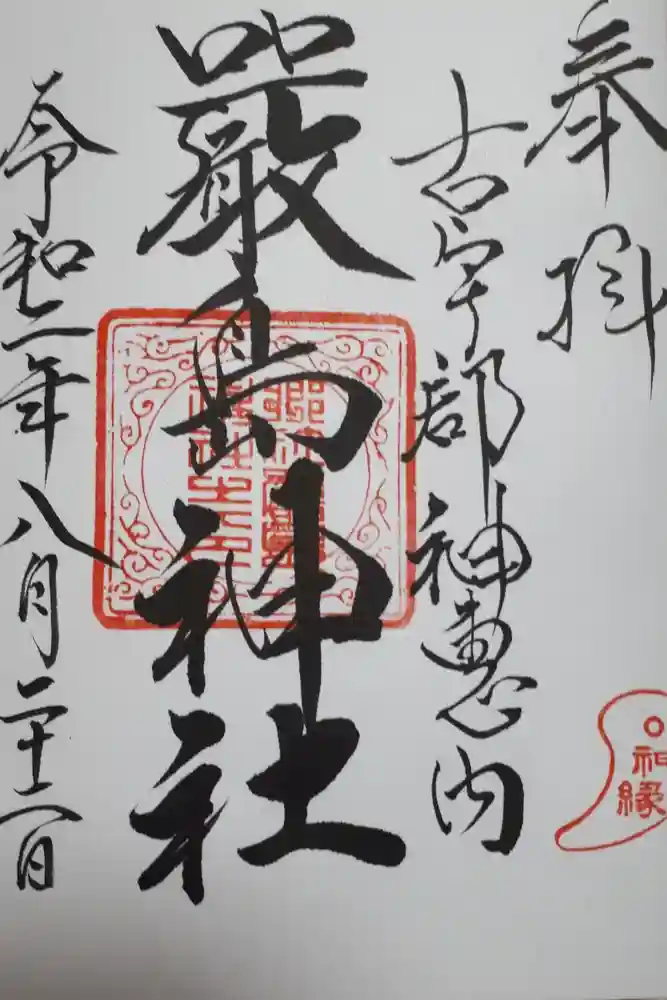 奉拝
古宇郡神恵内
嚴島神社
令和二年八月二十 日
縁